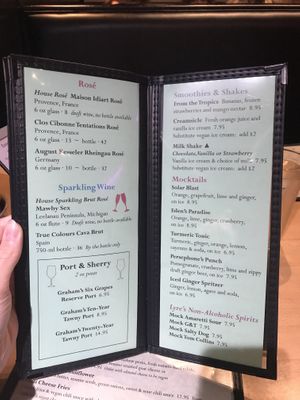 Rosé
House Rosé Maison Idiart Rosé
Provence, France
6 oz glass · 8 draft wine, no bottle available
Clos Cibonne Tentations Rosé
Provence, France
6 oz glass · 13 ~ bottle · 42
August Kesseler Rheingau Rosé
Germany
6 oz glass · 10 ~ bottle · 32
Sparkling Wine
House Sparkling Brut Rosé
Mawby Sex
Leelanau Peninsula, Michigan
6 oz flute · 9 Draft wine, no bottle available
True Colours Cava Brut
Spain
750 ml bottle · 36 By the bottle only
Port & Sherry
2 oz pours
Graham's Six Grapes
Reserve Port 6.95
Graham's Ten-Year
Tawny Port 8.95
Graham's Twenty-Year
Tawny Port 14.95
Smoothies & Shakes
From the Tropics Banana, frozen
strawberries and mango nectar 8.95
Creamsicle Fresh orange juice and
vanilla ice cream 7.95
Substitute vegan ice cream: add $2
Milk Shake
Chocolate, Vanilla or Strawberry
Vanilla ice cream & choice of
7.95
Substitute vegan ice cream: add $2
Mocktails
Solar Blast
Orange, grapefruit, lime, and
ginger, on ice 6.95
Eden's Paradise
Orange, lime, ginger, cranberry,
on ice 6.95
Turmeric Tonic
Turmeric, ginger, orange, lemon,
cayenne, and soda, on ice 6.95
Persephone's Punch
Pomegranate, cranberry, lime and sippy
dark ginger beer, on ice 6.95
Iced Ginger Spritzer
Ginger, lemon, agave and soda,
on ice 6.95
Lyre's Non-Alcoholic Spirits
Mock Amaretti Sour 7.95
Mock G&T 7.95
Mock Salty Dog 7.95
Mock Tom Collins 7.95
Cheese Fries